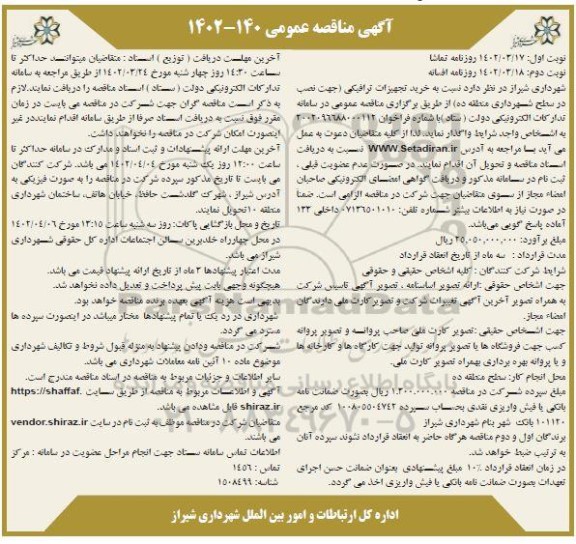 آگهی مناقصه عمومی ۱۴۰-۱۴۰۲
نوبت اول: ۱۴۰۲/۰۳/۱۷ روزنامه تماشا
نوبت دوم: ۱۴۰۲/۰۳/۱۸ روزنامه افسانه
شهرداری شیراز در نظر دارد نسبت به خرید تجهیزات ترافیکی (جهت نصب
در سطح شهرداری منطقه ده) از طریق برگزاری مناقصه عمومی در سامانه
تدارکات الکترونیکی دولت (ستاد) با شماره فراخوان ۲۰۰۲۰۹۶۶۸۸۰۰۰۱۱۲
به اشخاص واجد شرایط واگذار نماید. لذا از کلیه متقاضیان دعوت به عمل
می آید بسا مراجعه به آدرس WWW.Setadiran.ir نسبت به دریافت
اسناد مناقصه و تحویل آن اقدام نمایند. در صورت عدم عضویت قبلی ،
ثبت نام در سامانه مذکور و دریافت گواهی امضای الکترونیکی صاحبان
امضاء مجاز از سوی متقاضیان جهت شرکت در مناقصه الزامی است. ضمناً
در صورت نیاز به اطلاعات بیشتر شماره تلفن: ۰۷۱۳۶۵۰۱۰۱۰ داخلی ۱۳۳
آماده پاسخ گویی می‌باشد.
مبلغ برآورد: ۲۵,۰۵۰,۰۰۰,۰۰۰ ریال
مدت قرارداد : سه ماه از تاریخ انعقاد قرارداد
شرایط شرکت کنندگان : کلیه اشخاص حقیقی و حقوقی
جهت اشخاص حقوقی :ارائه تصویر اساسنامه ، تصویر آگهی تاسیس شرکت
به همراه تصویر آخرین آگهی تغییرات شرکت و تصویر کارت ملی دارندگان
امضاء مجاز.
جهت اشخاص حقیقی :تصویر کارت ملی صاحب پروانه و تصویر پروانه
کسب جهت فروشگاه ها یا تصویر پروانه تولید جهت کارگاه ها و کارخانه ها
و یا پروانه بهره برداری بهمراه تصویر کارت ملی.
محل انجام کار: سطح منطقه ده
مبلغ سپرده شرکت در مناقصه ۱,۳۰۰,۰۰۰,۰۰۰ ریال بصورت ضمانت نامه
بانکی یا فیش واریزی نقدی بحساب سپرده ۱۰۰۸۰۵۵۰۴۷۴۲ کد مرجع
۱۰۱۱۲۰ بانک شهر بنام شهرداری شیراز
برندگان اول و دوم مناقصه هرگاه حاضر به انعقاد قرارداد نشوند سپرده آنان
به ترتیب ضبط خواهد شد.
در زمان انعقاد قرارداد ۱۰٪ مبلغ پیشنهادی بعنوان ضمانت حسن اجرای
تعهدات بصورت ضمانت نامه بانکی یا فیش واریزی اخذ می گردد.
آخرین مهلت دریافت ( توزیع ) اسناد : متقاضیان میتوانند حداکثر تا
ساعت ۱۴:۳۰ روز چهار شنبه مورخ ۱۴۰۲/۰۳/۲۴ از طریق مراجعه به سامانه
تدارکات الکترونیکی دولت ( ستاد ) اسناد مناقصه را دریافت نمایند.لازم
به ذکر است مناقصه گران جهت شرکت در مناقصه می بایست در زمان
مقرر فوق نسبت به دریافت اسناد صرفا از طریق سامانه اقدام نماینددر غیر
اینصورت امکان شرکت در مناقصه را نخواهند داشت.
آخرین مهلت ارائه پیشنهادات و ثبت اسناد و مدارک در سامانه حداکثر تا
ساعت ۱۲:۰۰ روز یک شنبه مورخ ۱۴۰۲/۰۴/۰۴ می باشد. شرکت کنندگان
می بایست تا تاریخ مذکور سپرده شرکت در مناقصه را به صورت فیزیکی به
آدرس شیراز ، شهرک گلدشت حافظ، خیابان هاتف، ساختمان شهرداری
منطقه ۱۰تحویل نمایند.
تاریخ و محل بازگشایی پاکات: روز سه شنبه ساعت ۱۳:۱۵ مورخ ۱۴۰۲/۰۴/۰۶
در محل چهارراه خلدبرین سالن اجتماعات اداره کل حقوقی شهرداری
شیراز می باشد.
مدت اعتبار پیشنهادها ۳ماه از تاریخ ارائه پیشنهاد قیمت می باشد.
هیچگونه وجهی بابت پیش پرداخت و تعدیل داده نخواهد شد.
بدیهی است هزینه آگهی بعهده برنده مناقصه خواهد بود.
شهرداری در رد یک یا تمام پیشنهادها مختار میباشد در اینصورت سپرده ها
مسترد می گردد.
شرکت در مناقصه ودادن پیشنهاد به منزله قبول شروط و تکالیف شهرداری
موضوع ماده ۱۰ آئین نامه معاملات شهرداری می باشد.
سایر اطلاعات و جزئیات مربوط به مناقصه در اسناد مناقصه مندرج است.
آگهی و اطلاعات مربوط به مناقصه از طریق سایت https://shaffaf.
shiraz.ir قابل مشاهده می باشد.
متقاضیان شرکت در مناقصه موظف به ثبت نام در سایت vendor.shiraz.ir
می باشند.
اطلاعات تماس سامانه ستاد جهت انجام مراحل عضویت در سامانه : مرکز
تماس : ۱۴۵۶
شناسه: ۱۵۰۸۴۹۹
اداره کل ارتباطات و امور بین الملل شهرداری شیراز